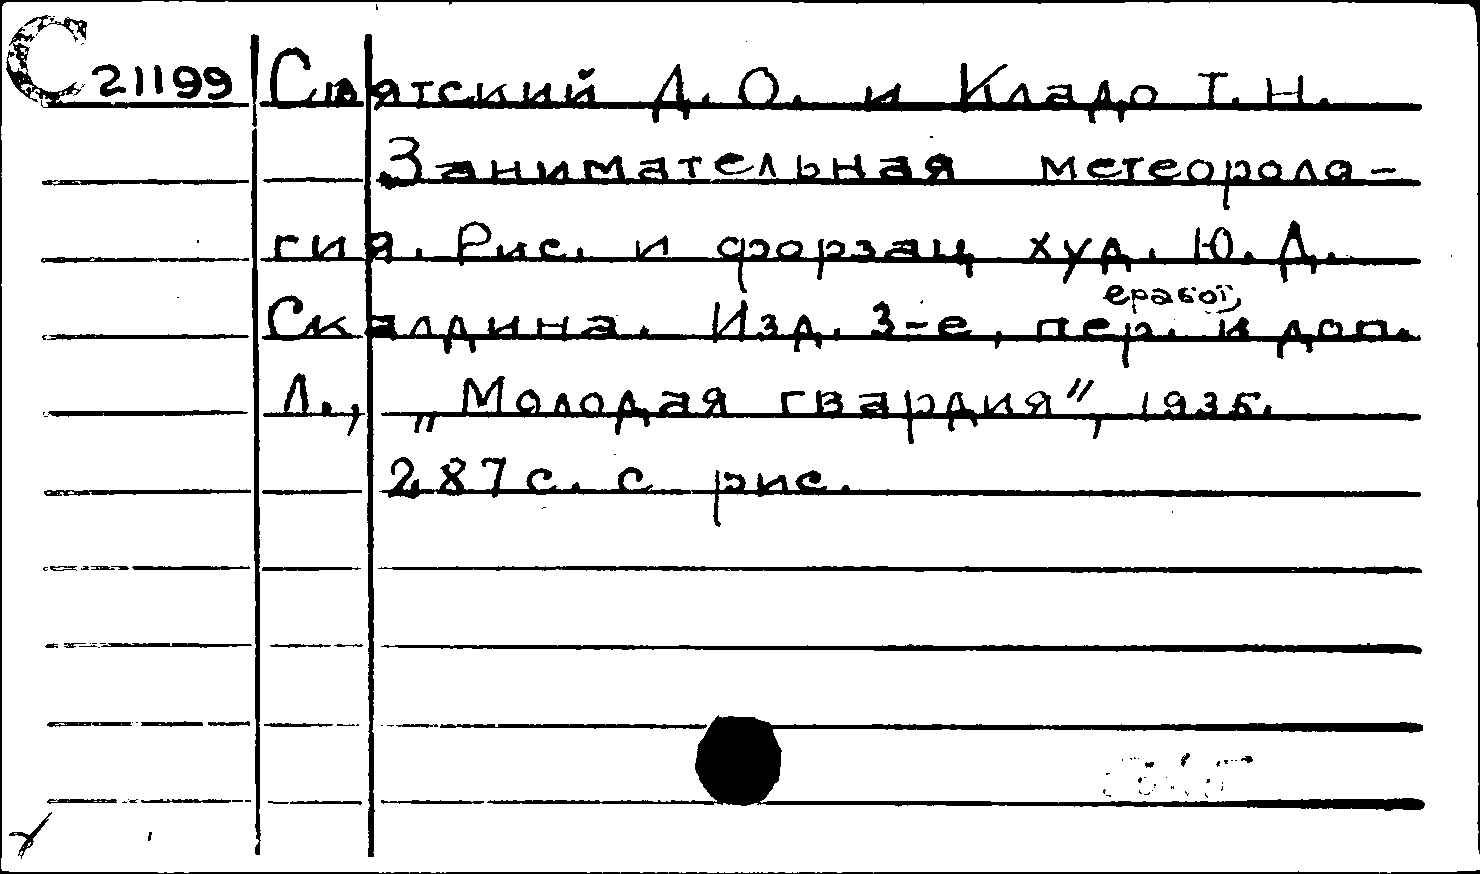 С 21199 Святский Д. О. и Кладо Т. Н.
Занимательная метеороло-
гия. Рис. и форзац худ. Ю. Д.
еработ.
Скалдина. Изд. 3-е, пер. и доп.
Л., „Молодая гвардия", 1935.
287 с. с рис.